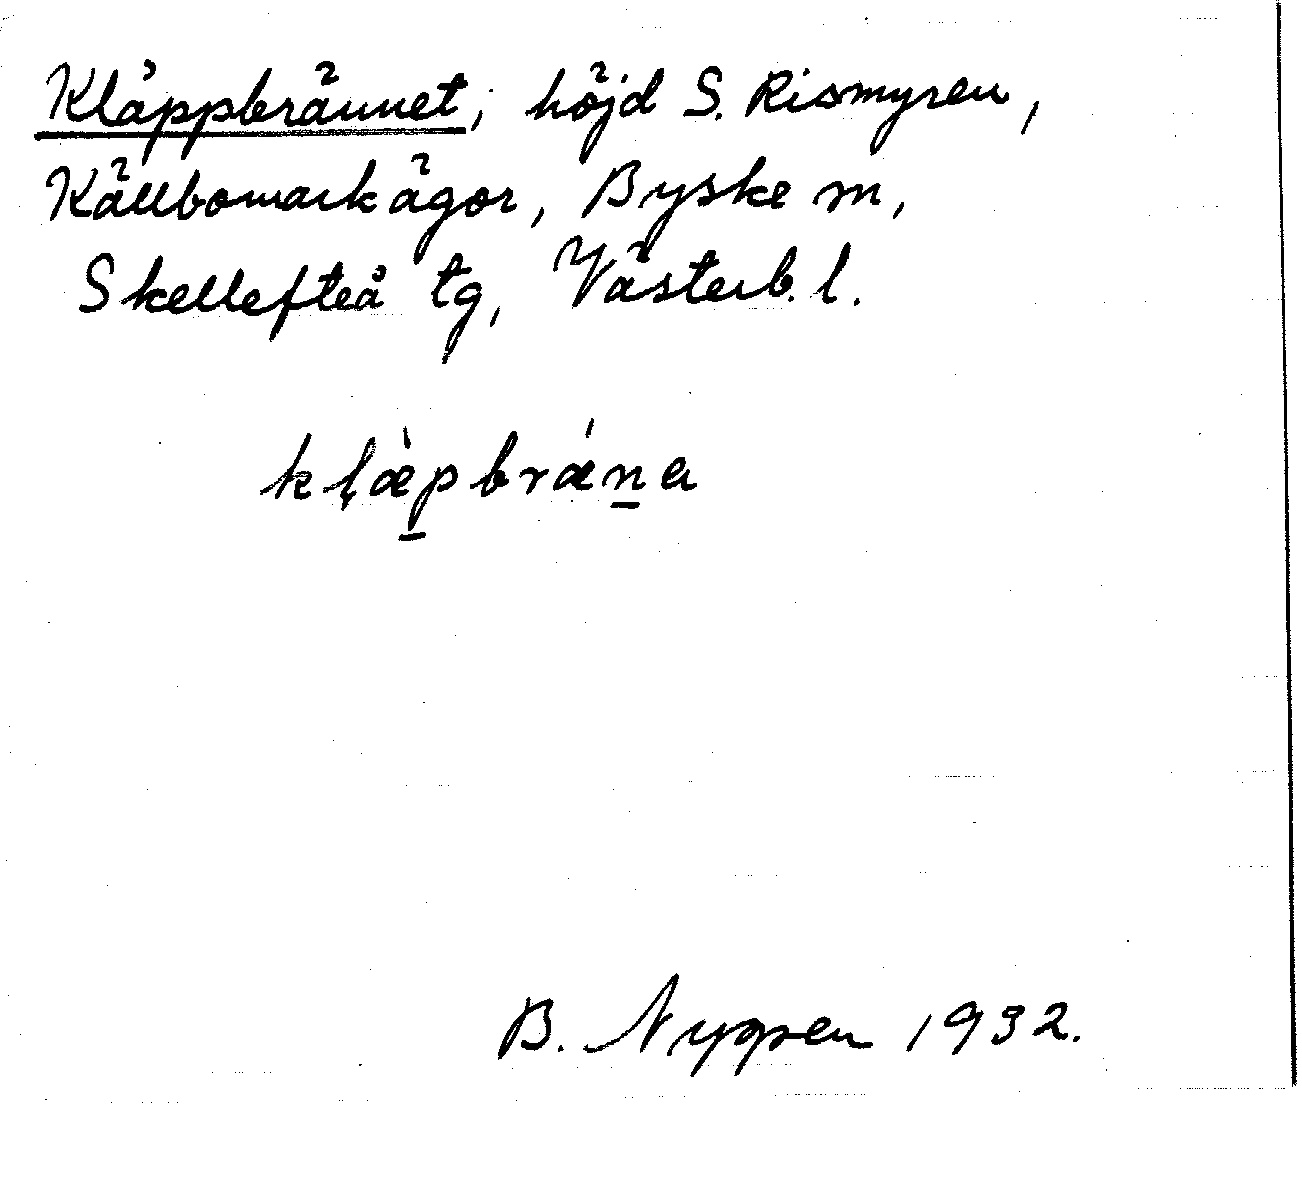 Kläppbrännet, höjd S. Rismyren,
Källbomarkägor, Byske sn,
Skellefteå tg, Västerb. l.
kḷæ̀p̱brǽṉa
B. Nygren 1932.